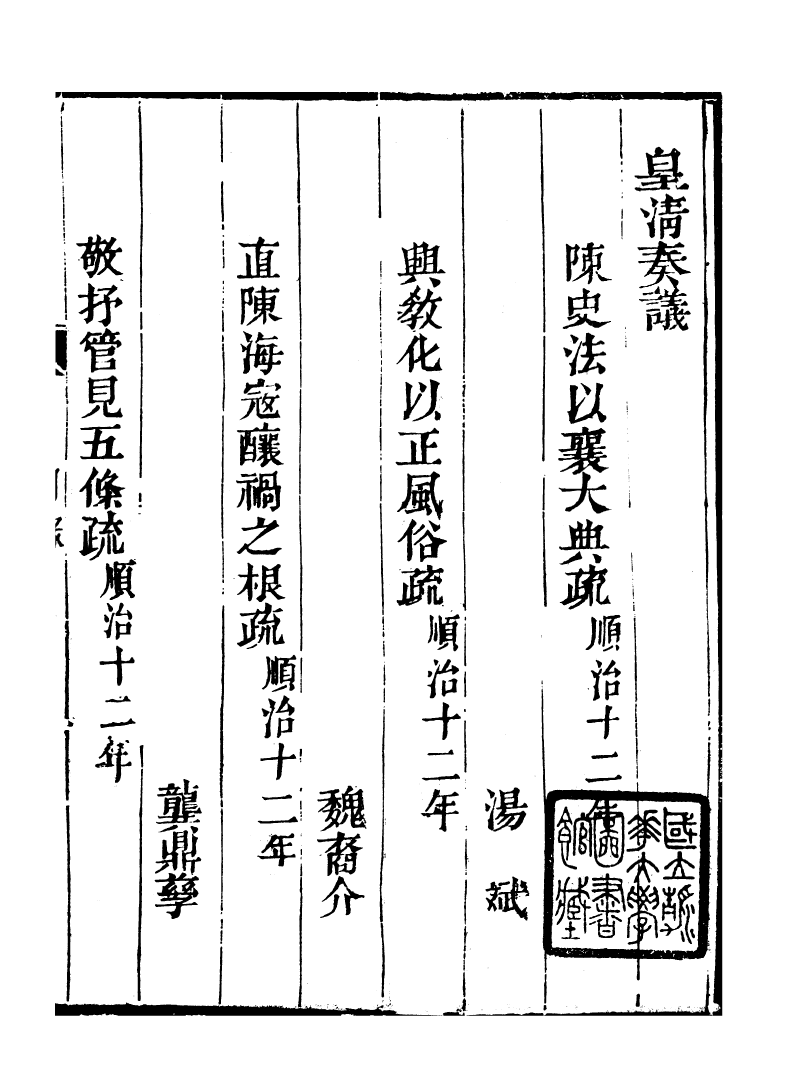 皇清奏議
陳史法以襄大典疏 順治十二年
湯 斌
興教化以正風俗疏 順治十二年
魏裔介
直陳海寇釀禍之根疏 順治十二年
龔鼎孳
敬抒管見五條疏 順治十二年
國立清
華大學
圖書
館藏